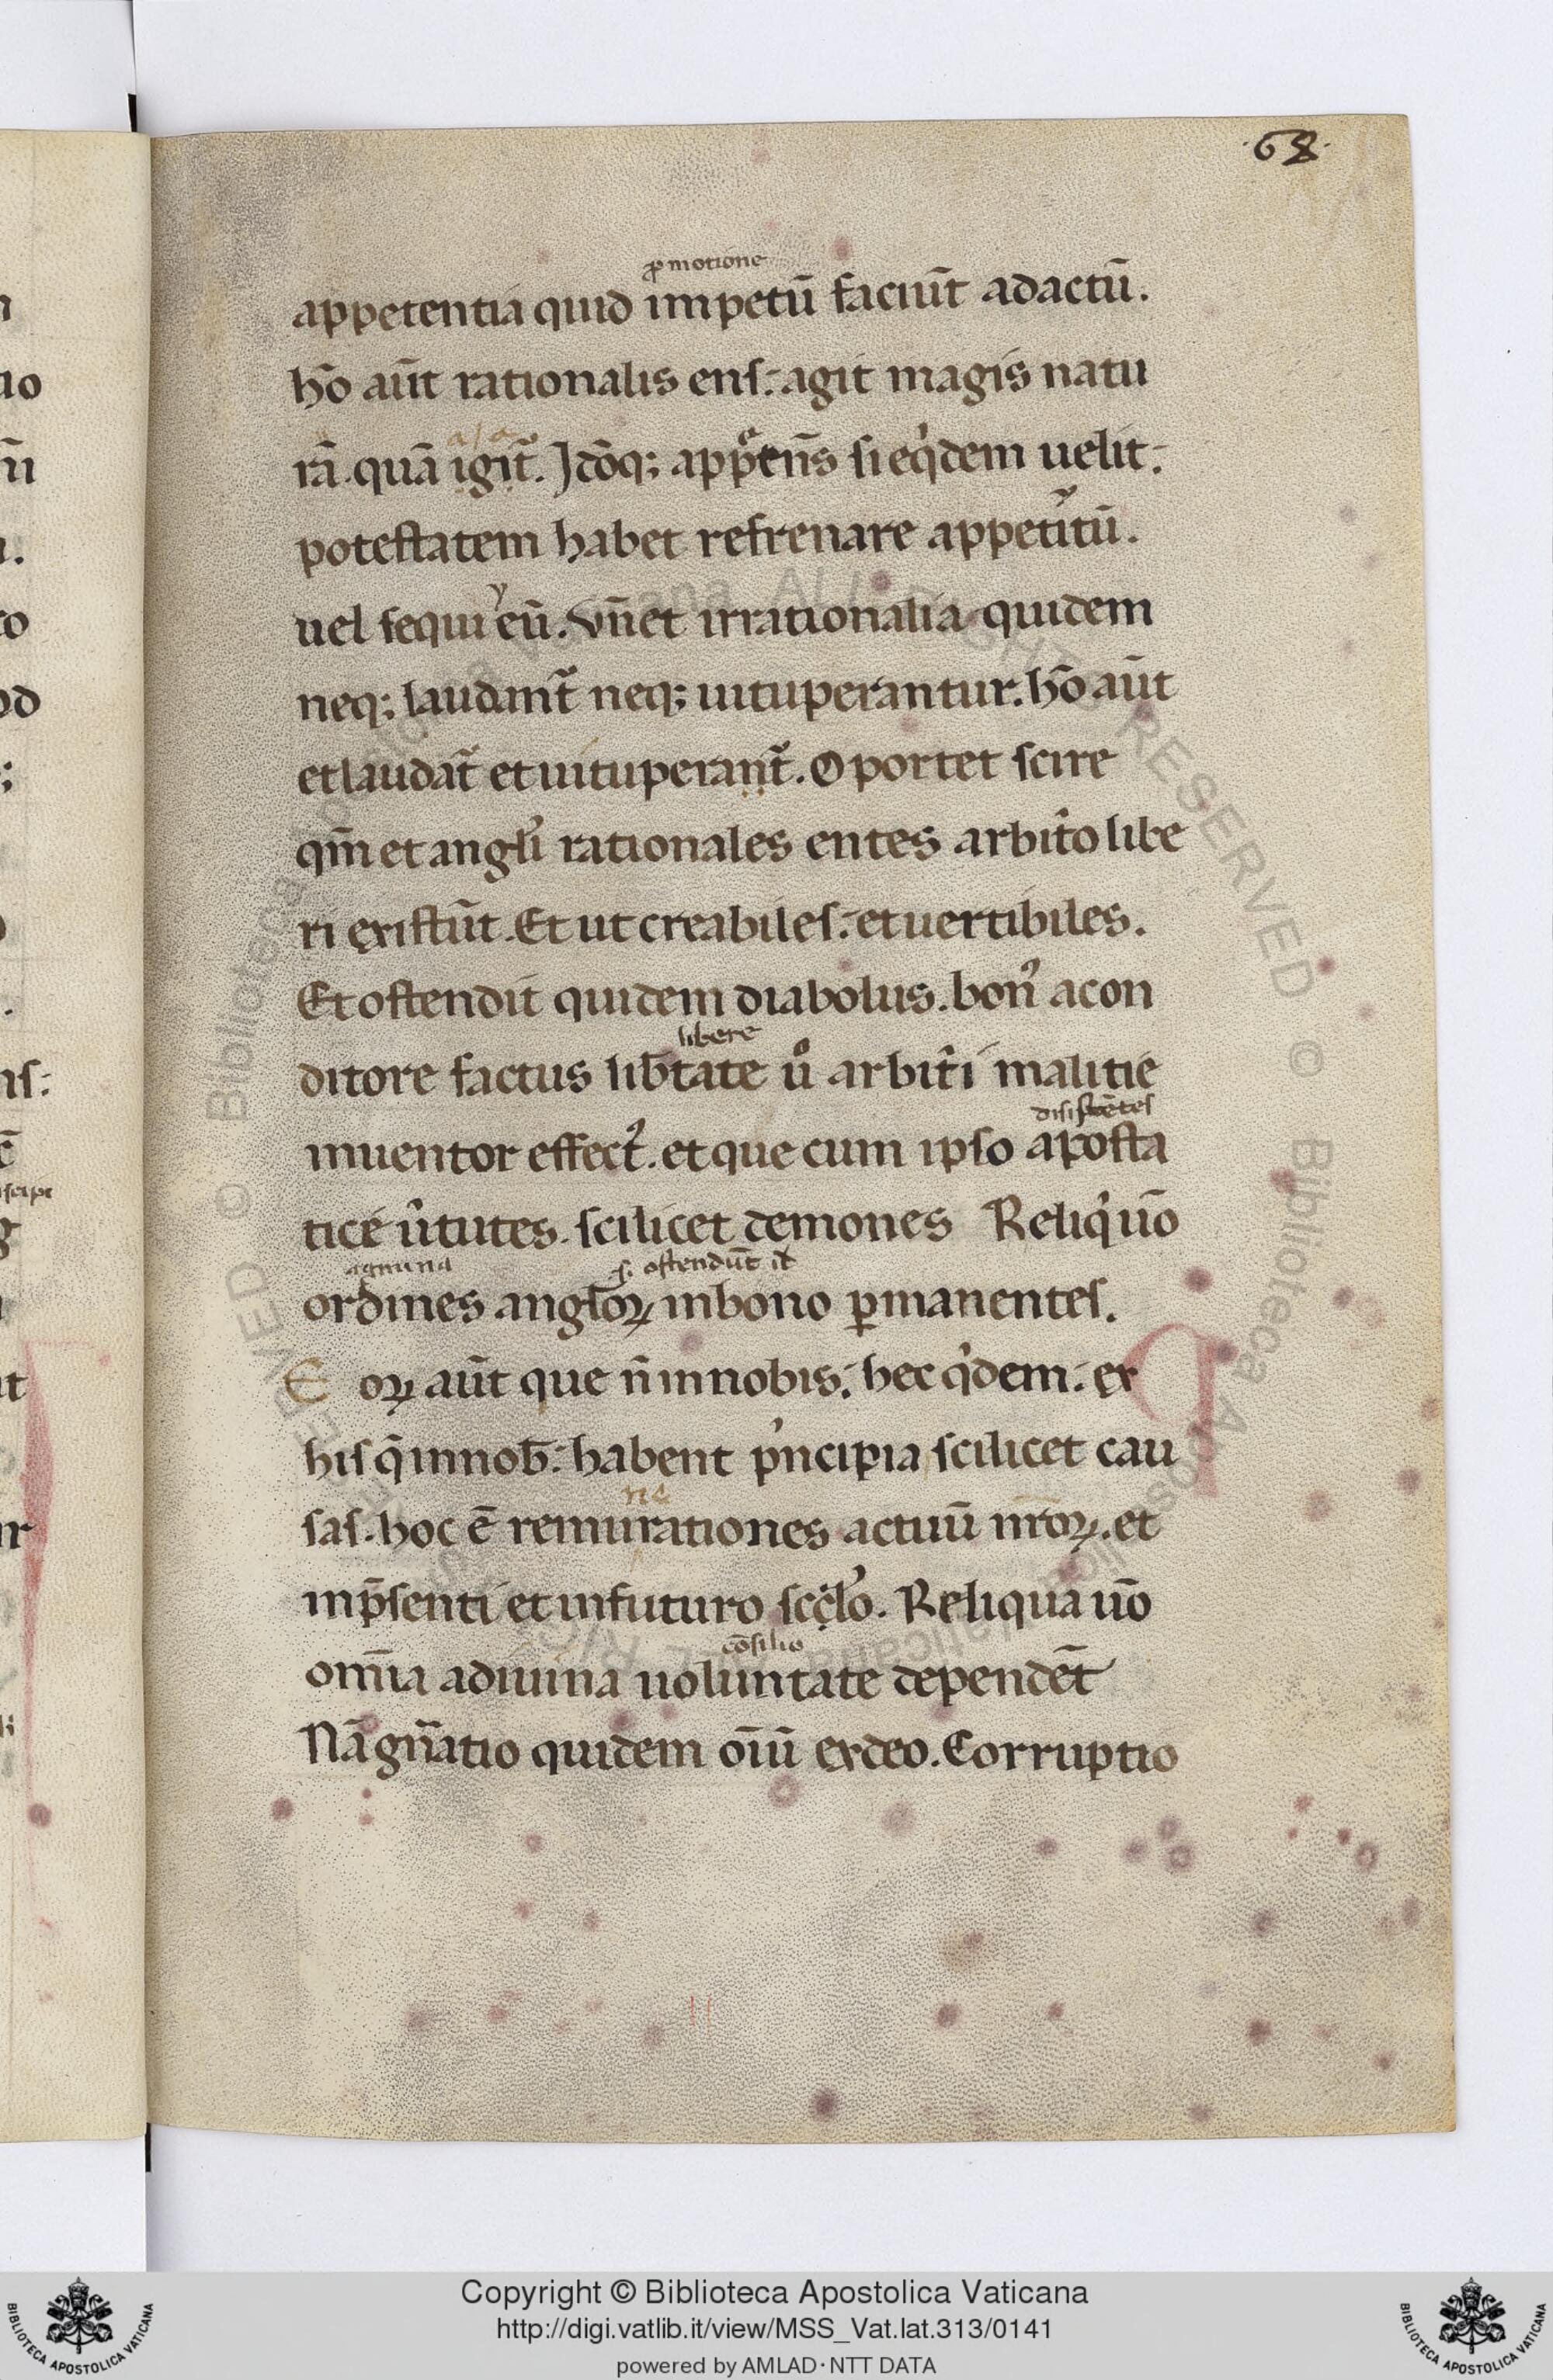 ·68·
ꝓmotione
appetentia quid impetū faciūt adactū.
hō aūt rationalis ens: agit magis natu
rā. quā igit᷑. Idōq; app̄tens̄ si eqͥdem uelit:
potestatem habet refrenare appetitū.
uel sequi eū. Vn̄ et irrationalia quidem
neq; laudant᷑ neq; uituperantur. hō aūt
et laudat᷑ et uituperant᷑. Oportet scire
qm̄ et angl̓i rationales entes arbit̓o libe
ri existūt. Et ut creabiles: et uertibiles.
Et ostendit quidem diabolus. bon᷒ acon
libere
ditore factus lib̄tate ů arbit̓i malitie
inuentor effect᷒. et que cum ipso aposta
tice u̓tutes. scilicet demones Reliq̓ uō
agmina s. ostendūt
ordines angl̓oꝝ inbono ꝑmanentes.
E oꝝ aūt que n̄ innobis: hec q̓dem: ex
his q̄ innob̄: habent p̓ncipia scilicet cau
ne
sas. hoc ē remurationes actuū nr̄oꝝ. et
inp̄senti et infuturo scc̓lo. Reliqua uō
cōsilio
om̄ia adiuina uoluntate dependēt
Nā gn̄atio quidem oīū exdeo. Corruptio
Copyright © Biblioteca Apostolica Vaticana
http://digi.vatlib.it/view/MSS_Vat.lat.313/0141
powered by AMLAD·NTT DATA
BIBLIOTECA APOSTOLICA VATICANA
BIBLIOTECA APOSTOLICA VATICANA